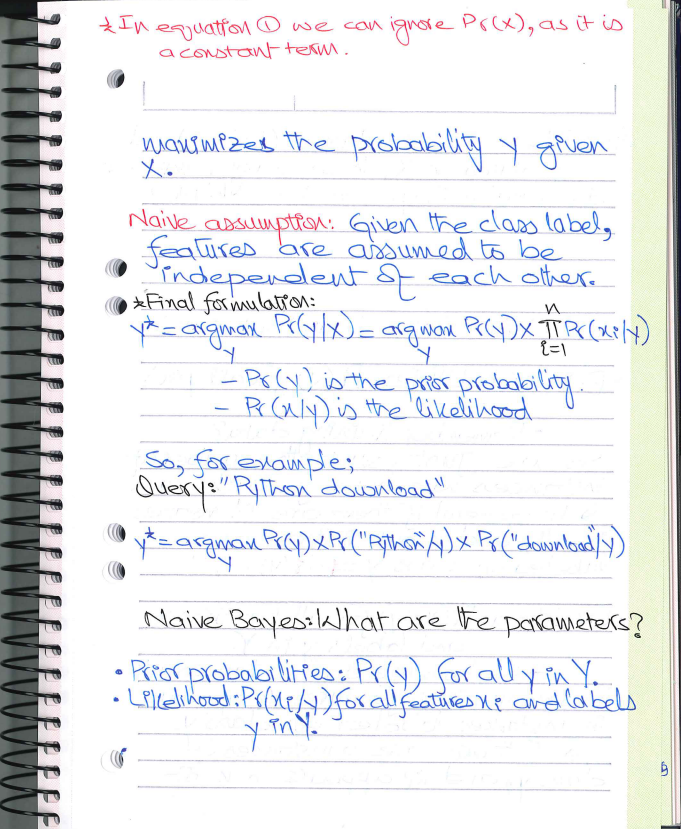 * In equation ① we can ignore Pr(x), as it is
a constant term.
maximizes the probability y given
X.
Naive assumption: Given the class label,
features are assumed to be
independent of each other.
* Final formulation:
y* = argmax Pr(y/x) = argmax Pr(y) x n∏i=1 Pr(xi/y)
y y
- Pr(y) is the prior probability.
- Pr(x/y) is the likelihood
So, for example;
Query: "Python download"
y* = argmax Pr(y) x Pr("Python"/y) x Pr("download"/y)
y
Naive Bayes: What are the parameters?
• Prior probabilities: Pr(y) for all y in Y.
• Likelihood: Pr(xi/y) for all features xi and labels
y in Y.